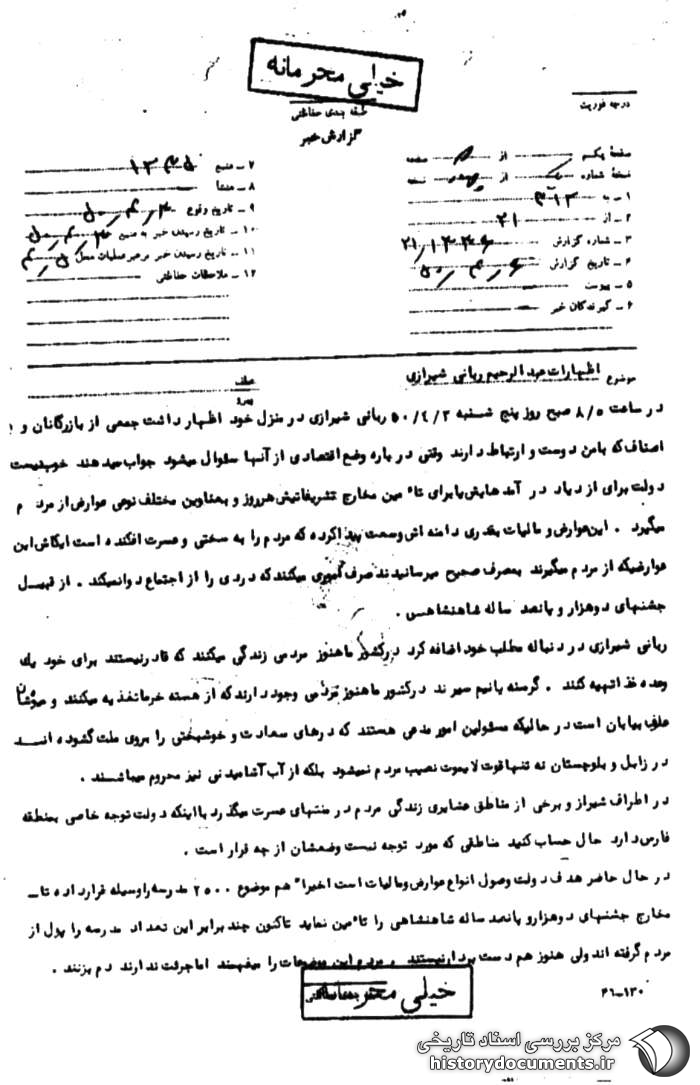 خیلی محرمانه
طبقه بندی حفاظتی
گزارش خبر
درجه فوریت
صفحهٔ یکم از صفحه
نسخهٔ شماره از نسخه
۱ ـ به ۳۱۲
۲ ـ از ۲۱
۳ ـ شماره گزارش
۴ ـ تاریخ گزارش
۵ ـ پیوست
۶ ـ گیرندگان خبر
۷ ـ منبع
۸ ـ منشأ
۹ ـ تاریخ وقوع
۱۰ ـ تاریخ رسیدن خبر به منبع
۱۱ ـ تاریخ رسیدن خبر به رهبر عملیات محل
۱۲ ـ ملاحظات حفاظتی
موضوع اظهارات عبدالرحیم ربانی شیرازی
عطف
پیرو
در ساعت ۸/۵ صبح روز پنج شنبه ۵۰/۴/۳ ربانی شیرازی در منزل خود اظهار داشت جمعی از بازرگانان و
اصناف که بامن دوست و ارتباط دارند وقتی در باره وضع اقتصادی از آنها سئوال میشود جواب میدهند خوب نیست
دولت برای ازدیاد در آمدهایش یا برای تأمین مخارج تشریفاتیش هر روز و بعناوین مختلف نوعی عوارض از مردم
میگیرد . این عوارض و مالیات بقدری دامنه اش وسعت پیدا کرده که مردم را به سختی و عسرت افکنده است ایکاش این
عوارضیکه از مردم میگیرند بمصرف صحیح میرسانیدند صرف میکنند که دردی را از اجتماع دوا نمیکند . از قبیل
جشنهای دو هزار و پانصد ساله شاهنشاهی .
ربانی شیرازی در دنباله مطلب خود اضافه کرد در کشور ما هنوز مردمی زندگی میکنند که قادر نیستند برای خود یک
وعده غذا تهیه کنند . گرسنه یا نیم سیرند در کشور ما هنوز مردمی وجود دارند که از هسته خرما تغذیه میکنند و
علف بیابان است در حالیکه مسئولین امور مدعی هستند که درهای سعادت و خوشبختی را بروی ملت گشوده اند
در زابل و بلوچستان نه تنها قوت لایموت نصیب مردم نمیشود بلکه از آب آشامیدنی نیز محروم میباشند .
در اطراف شیراز و برخی از مناطق عشایری زندگی مردم در منتهای عسرت میگذرد با اینکه دولت توجه خاصی بمنطقه
فارس دارد حال حساب کنید مناطقی که مورد توجه نیست وضعشان از چه قرار است .
در حال حاضر هدف دولت وصول انواع عوارض و مالیات است اخیراً هم موضوع ۲۵۰۰ مدرسه را وسیله قرار داده تا ـ
مخارج جشنهای دو هزار و پانصد ساله شاهنشاهی را تأمین نماید تاکنون چند برابر این تعداد مدرسه را پول از
مردم گرفته اند ولی هنوز هم دست بردار نیستند . مردم این موضوعات را میفهمند اما جرئت ندارند دم بزنند .
۴۶ـ۱۳۰
خیلی محرمانه
مرکز بررسی اسناد تاریخی
historydocuments.ir